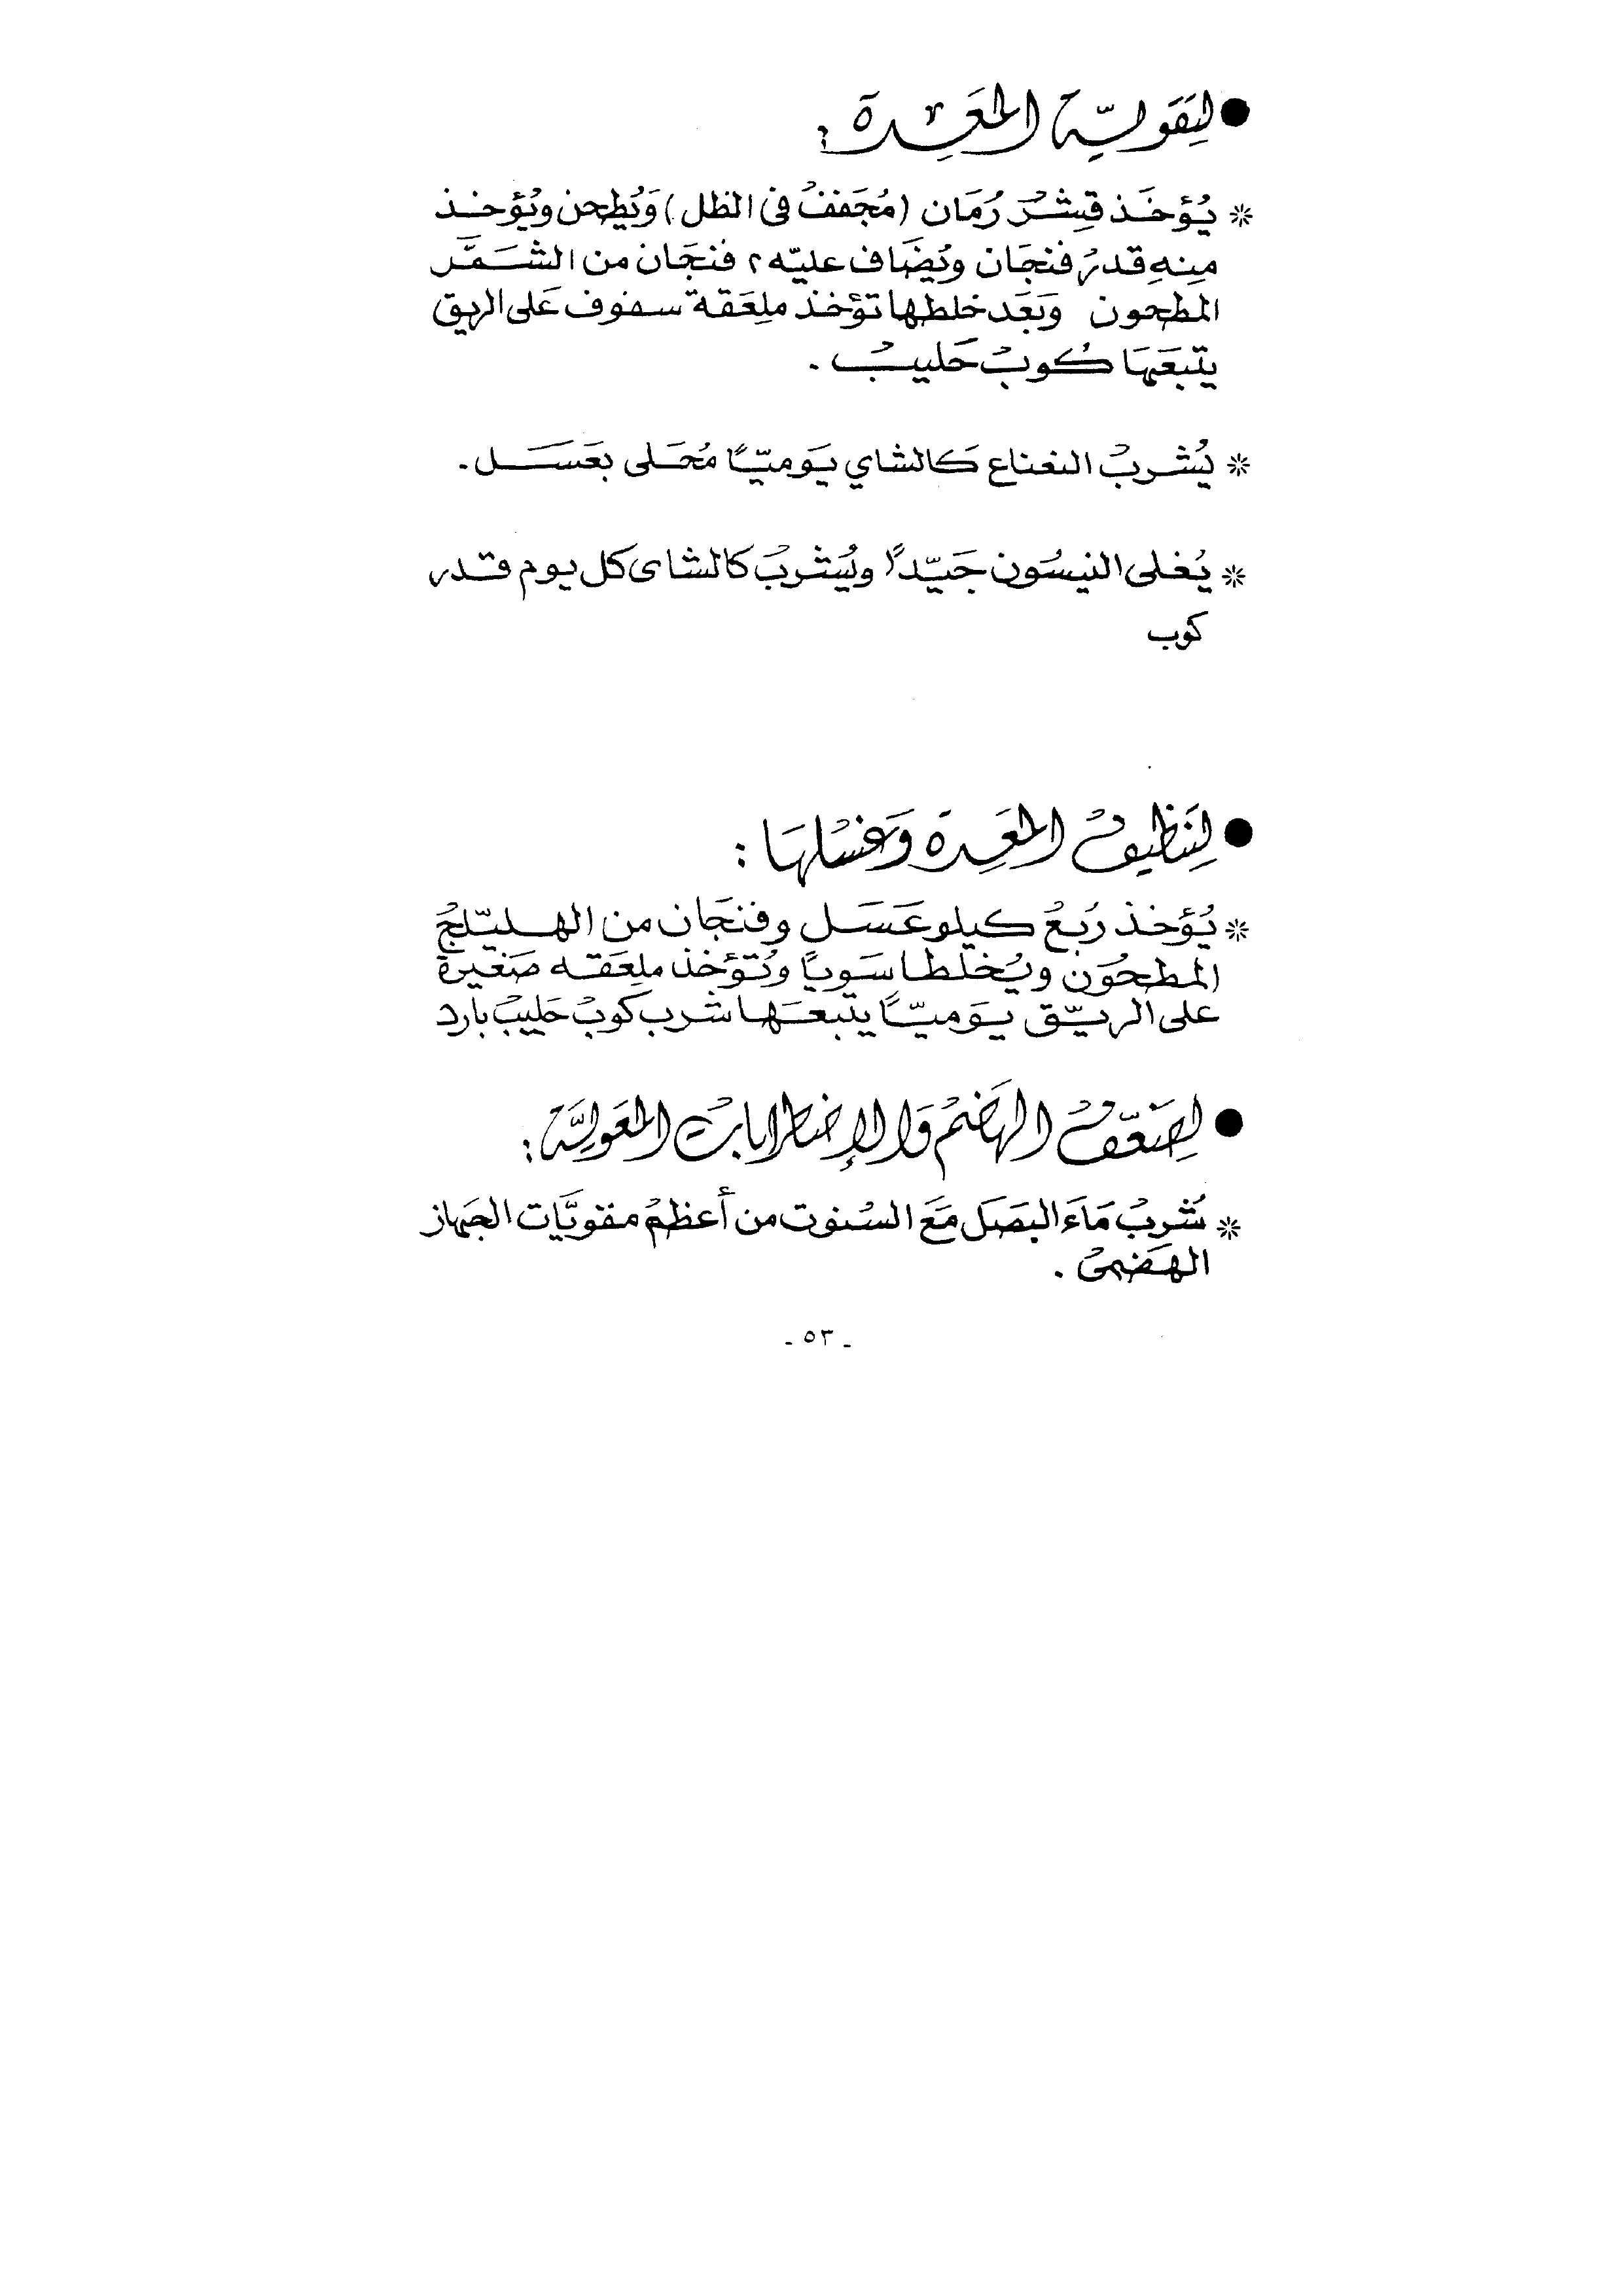 ● لتقوية المعدة :
* يُؤخَذ قِشرُ رُمَان (مُجَففُ فى الظل) وَيُطحن ويُؤخذ
مِنهِ قدرُ فنجَان ويُضَاف عليّه ٢ فنجَان من الشَمَّر
المطحون وَبَعَد خلطها تؤخذ ملِعَقة سفوف عَلى الريق
يتبعَهَا كُوبُ حَليبُ .
* يُشربُ النعناع كَالشاي يَوميّاً مُحَلى بعَسَل .
* يُغلى النيسُون جَيّداً ويُشربُ كالشاى كل يوم قدر
كوب
● لِتَنظيفُ المعَدِة وَغسْلهَا :
* يُؤَخذ رُبعُ كيلو عَسَل وفنجَان من الهليّلجُ
المطحُون ويُخلطا سَوياً وتُؤخذ ملِعَقه صَغيرة
على الريّق يَوميّاً يتبعَها شرب كوبُ حَليبُ بارد
● لِضَعّفُ الهَضمُ وَالإضطراباتُ المعَوليَّة :
* شُربُ مَاءَ البَصَل مَعَ السُنوت من أعظمُ مقويَّات الجَهاز
الهَضمىُ .
- ٥٣ -